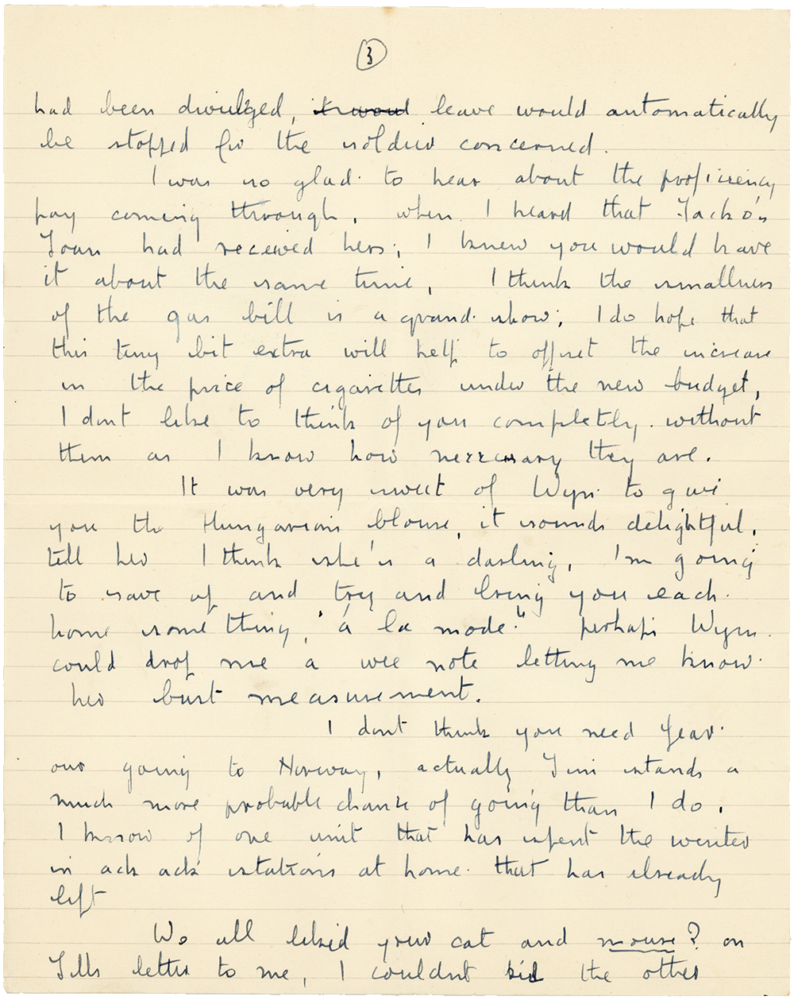 3
had been divulged, it woul leave would automatically
be stopped for the soldier concerned.
I was so glad to hear about the proficiency
pay coming through, when I heard that Jacko's
Joan had received hers, I knew you would have
it about the same time, I think the smallness
of the gas bill is a grand show; I do hope that
this tiny bit extra will help to offset the increase
in the price of cigarettes under the new budget,
I dont like to think of you completely without
them as I know how necessary they are.
It was very sweet of Wyn to give
you the Hungarian blouse, it sounds delightful,
tell her I think she's a darling, I'm going
to save up and try and bring you each
home something, "á la mode" perhaps Wyn
could drop me a wee note letting me know
her bust measurement.
I dont think you need fear
our going to Norway, actually Jim stands a
much more probable chance of going than I do,
I know of one unit that has spent the winter
in ack ack stations at home that has already
left
We all liked your cat and mouse? on
letter to me, I couldnt kid the other